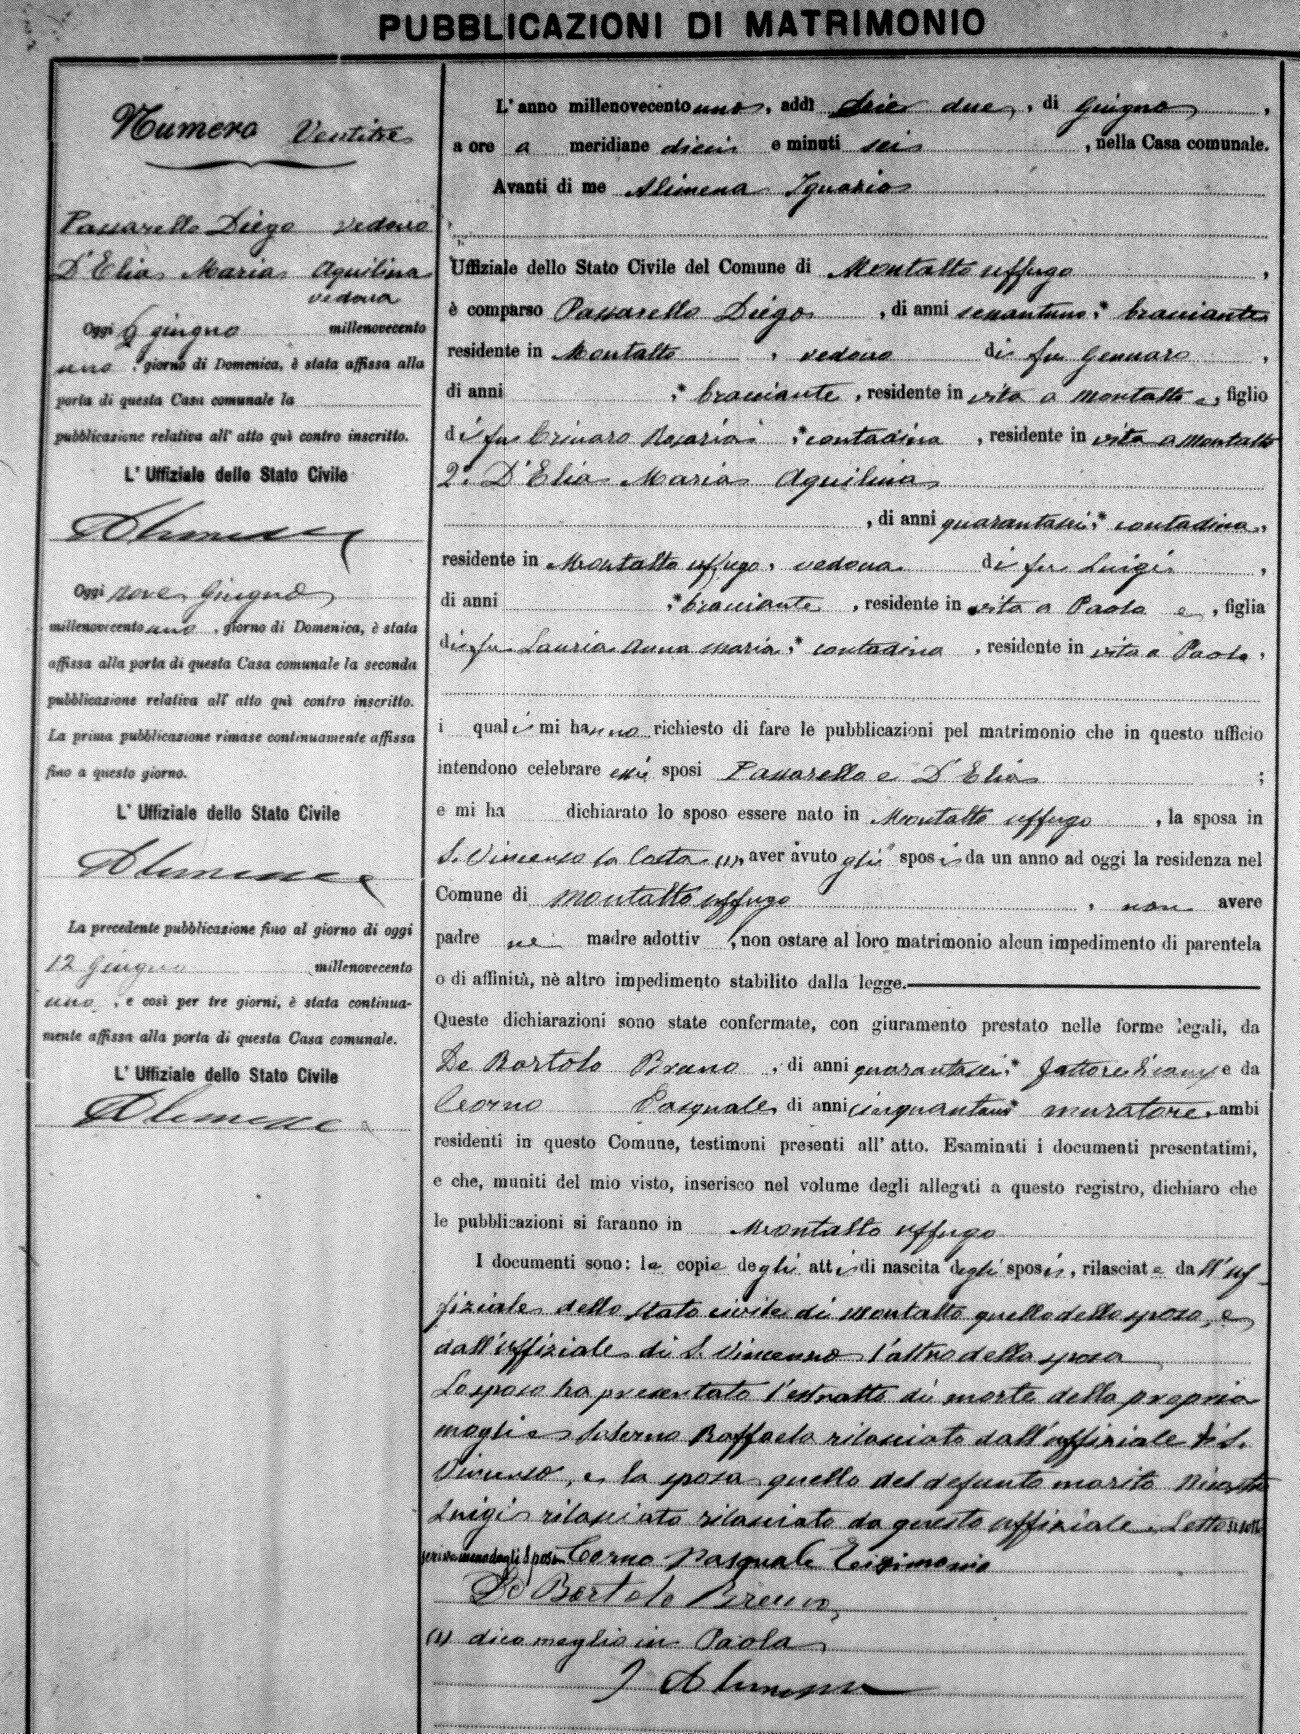 PUBBLICAZIONI DI MATRIMONIO
Numero Ventitre
Passarello Diego vedovo
D'Elia Maria Aquilina
vedova
Oggi giugno millenovecento
uno, giorno di Domenica, è stata affissa alla
porta di questa Casa comunale la
pubblicazione relativa all' atto quì contro inscritto.
L' Uffiziale dello Stato Civile
Alimena
Oggi nove Giugno
millenovecento uno, giorno di Domenica, è stata
affissa alla porta di questa Casa comunale la seconda
pubblicazione relativa all' atto quì contro inscritto.
La prima pubblicazione rimase continuamente affissa
fino a questo giorno.
L' Uffiziale dello Stato Civile
Alimena
La precedente pubblicazione fino al giorno di oggi
12 Giugno millenovecento
uno, e così per tre giorni, è stata continua-
mente affissa alla porta di questa Casa comunale.
L' Uffiziale dello Stato Civile
Alimena
L' anno millenovecento uno, addì due, di Giugno,
a ore a meridiane dieci e minuti sei, nella Casa comunale.
Avanti di me Alimena Ignazio
Uffiziale dello Stato Civile del Comune di Montalto uffugo,
è comparso Passarello Diego, di anni sessantuno, * bracciante
residente in Montalto, vedovo di fu Gennaro,
di anni , * bracciante, residente in vita a Montalto e, figlio
di fu Crinaro Rosaria * contadina, residente in vita a Montalto
2º D'Elia Maria Aquilina
, di anni quarantasei, * contadina,
residente in Montalto uffugo, vedova di fu Luigi,
di anni , * bracciante, residente in vita a Paola e, figlia
di fu Lauria Anna Maria, * contadina, residente in vita a Paola,
i quali mi hanno richiesto di fare le pubblicazioni pel matrimonio che in questo ufficio
intendono celebrare essi sposi Passarello e D'Elia ;
e mi ha dichiarato lo sposo essere nato in Montalto uffugo, la sposa in
S. Vincenzo la Costa (1), aver avuto gli sposi da un anno ad oggi la residenza nel
Comune di Montalto uffugo, non avere
padre nè madre adottiv , non ostare al loro matrimonio alcun impedimento di parentela
o di affinità, nè altro impedimento stabilito dalla legge.
Queste dichiarazioni sono state confermate, con giuramento prestato nelle forme legali, da
De Bartolo Bruno, di anni quarantasei, * fattore di camp e da
Corno Pasquale, di anni * muratore, ambi
residenti in questo Comune, testimoni presenti all' atto. Esaminati i documenti presentatimi,
e che, muniti del mio visto, inserisco nel volume degli allegati a questo registro, dichiaro che
le pubblicazioni si faranno in Montalto uffugo
I documenti sono: le copie degli atti di nascita degli sposi, rilasciate dall'uf-
fiziale dello stato civile di Montalto quello dello sposo, e
dall'uffiziale di S. Vincenzo l'altro della sposa
Lo sposo ha presentato l'estratto di morte della propria
moglie Salerno Raffaela rilasciato dall'uffiziale di S.
Vincenzo, e la sposa quello del defunto marito
Luigi rilasciato rilasciato da questo uffiziale. Letto si sotto
scrive meno dagli sposi Corno Pasquale Teisimonio
De Bartolo Bruno
(1) dico meglio in Paola
I Alimena